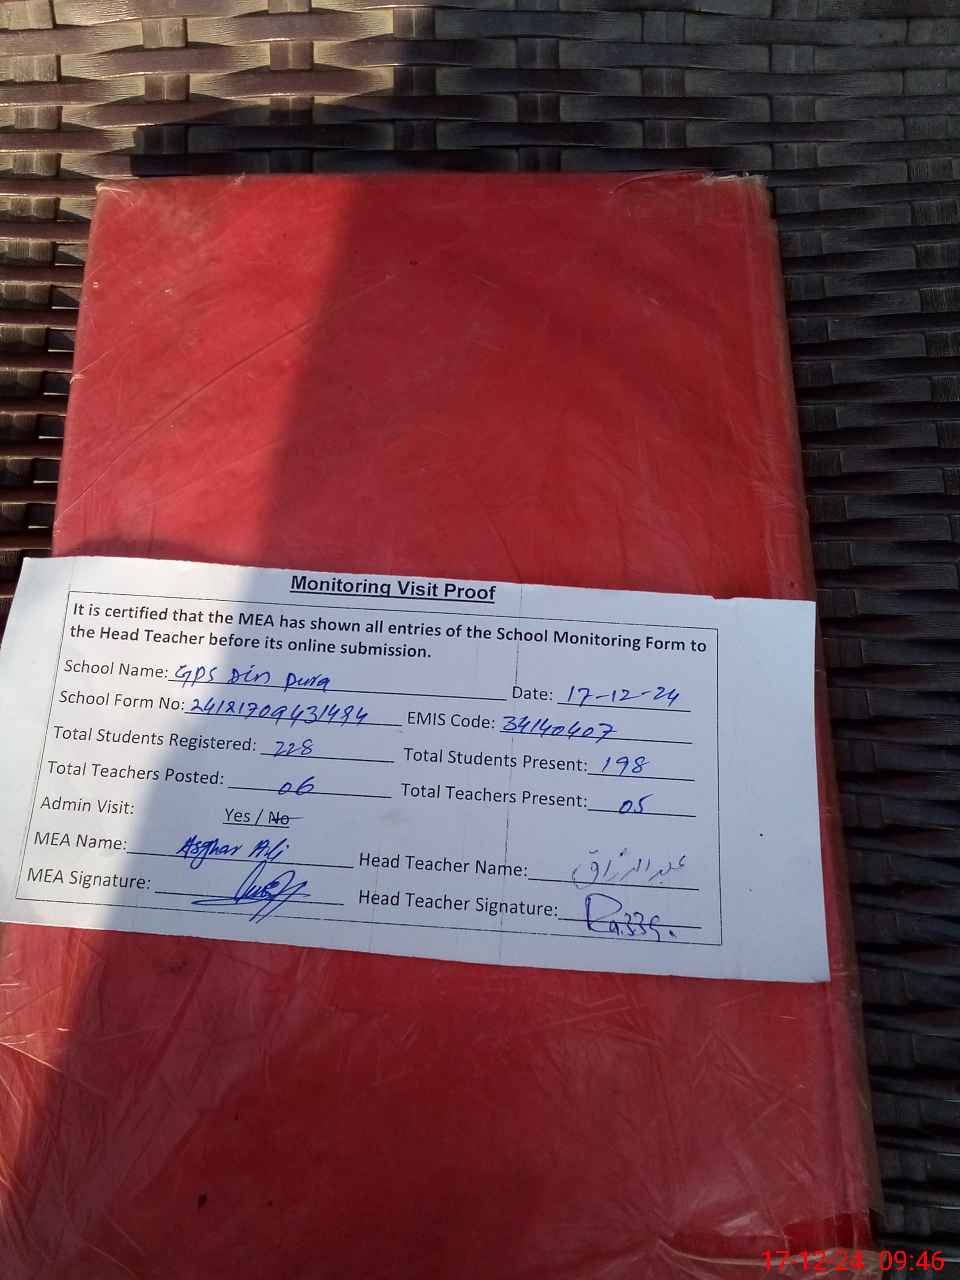 Monitoring Visit Proof
It is certified that the MEA has shown all entries of the School Monitoring Form to
the Head Teacher before its online submission.
School Name: GPS Din Pura Date: 17-12-24
School Form No: 24181709431484 EMIS Code: 34140407
Total Students Registered: 228 Total Students Present: 198
Total Teachers Posted: 06 Total Teachers Present: 05
Admin Visit: Yes / No
MEA Name: Asghar Ali Head Teacher Name: عبدالرزاق
MEA Signature: Head Teacher Signature:
17-12-24 09:46